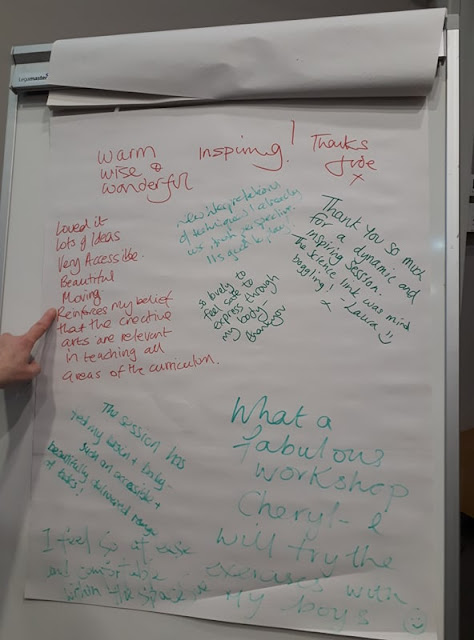 Legamaster
warm
wise &
wonderful
Inspiring!
Thanks
Jude
x
new interpretations
of techniques I already
use, fresh perspective.
It's great to play!
Thank you so much
for a dynamic and
inspiring session.
The science link was mind
boggling! - Laura
x
Loved it
Lots of Ideas
Very Accessible.
Beautiful
Moving
Reinforces my belief
that the creative
arts are relevant
in teaching all
areas of the curriculum.
so lovely to
feel safe to
express through
my body -
thankyou
The session has
fed my brain & body -
such an accessible &
beautifully delivered range
of tasks!
What a
fabulous
workshop
Cheryl - I
will try the
exercises with
my boys
I feel so at ease
and comfortable
within the space